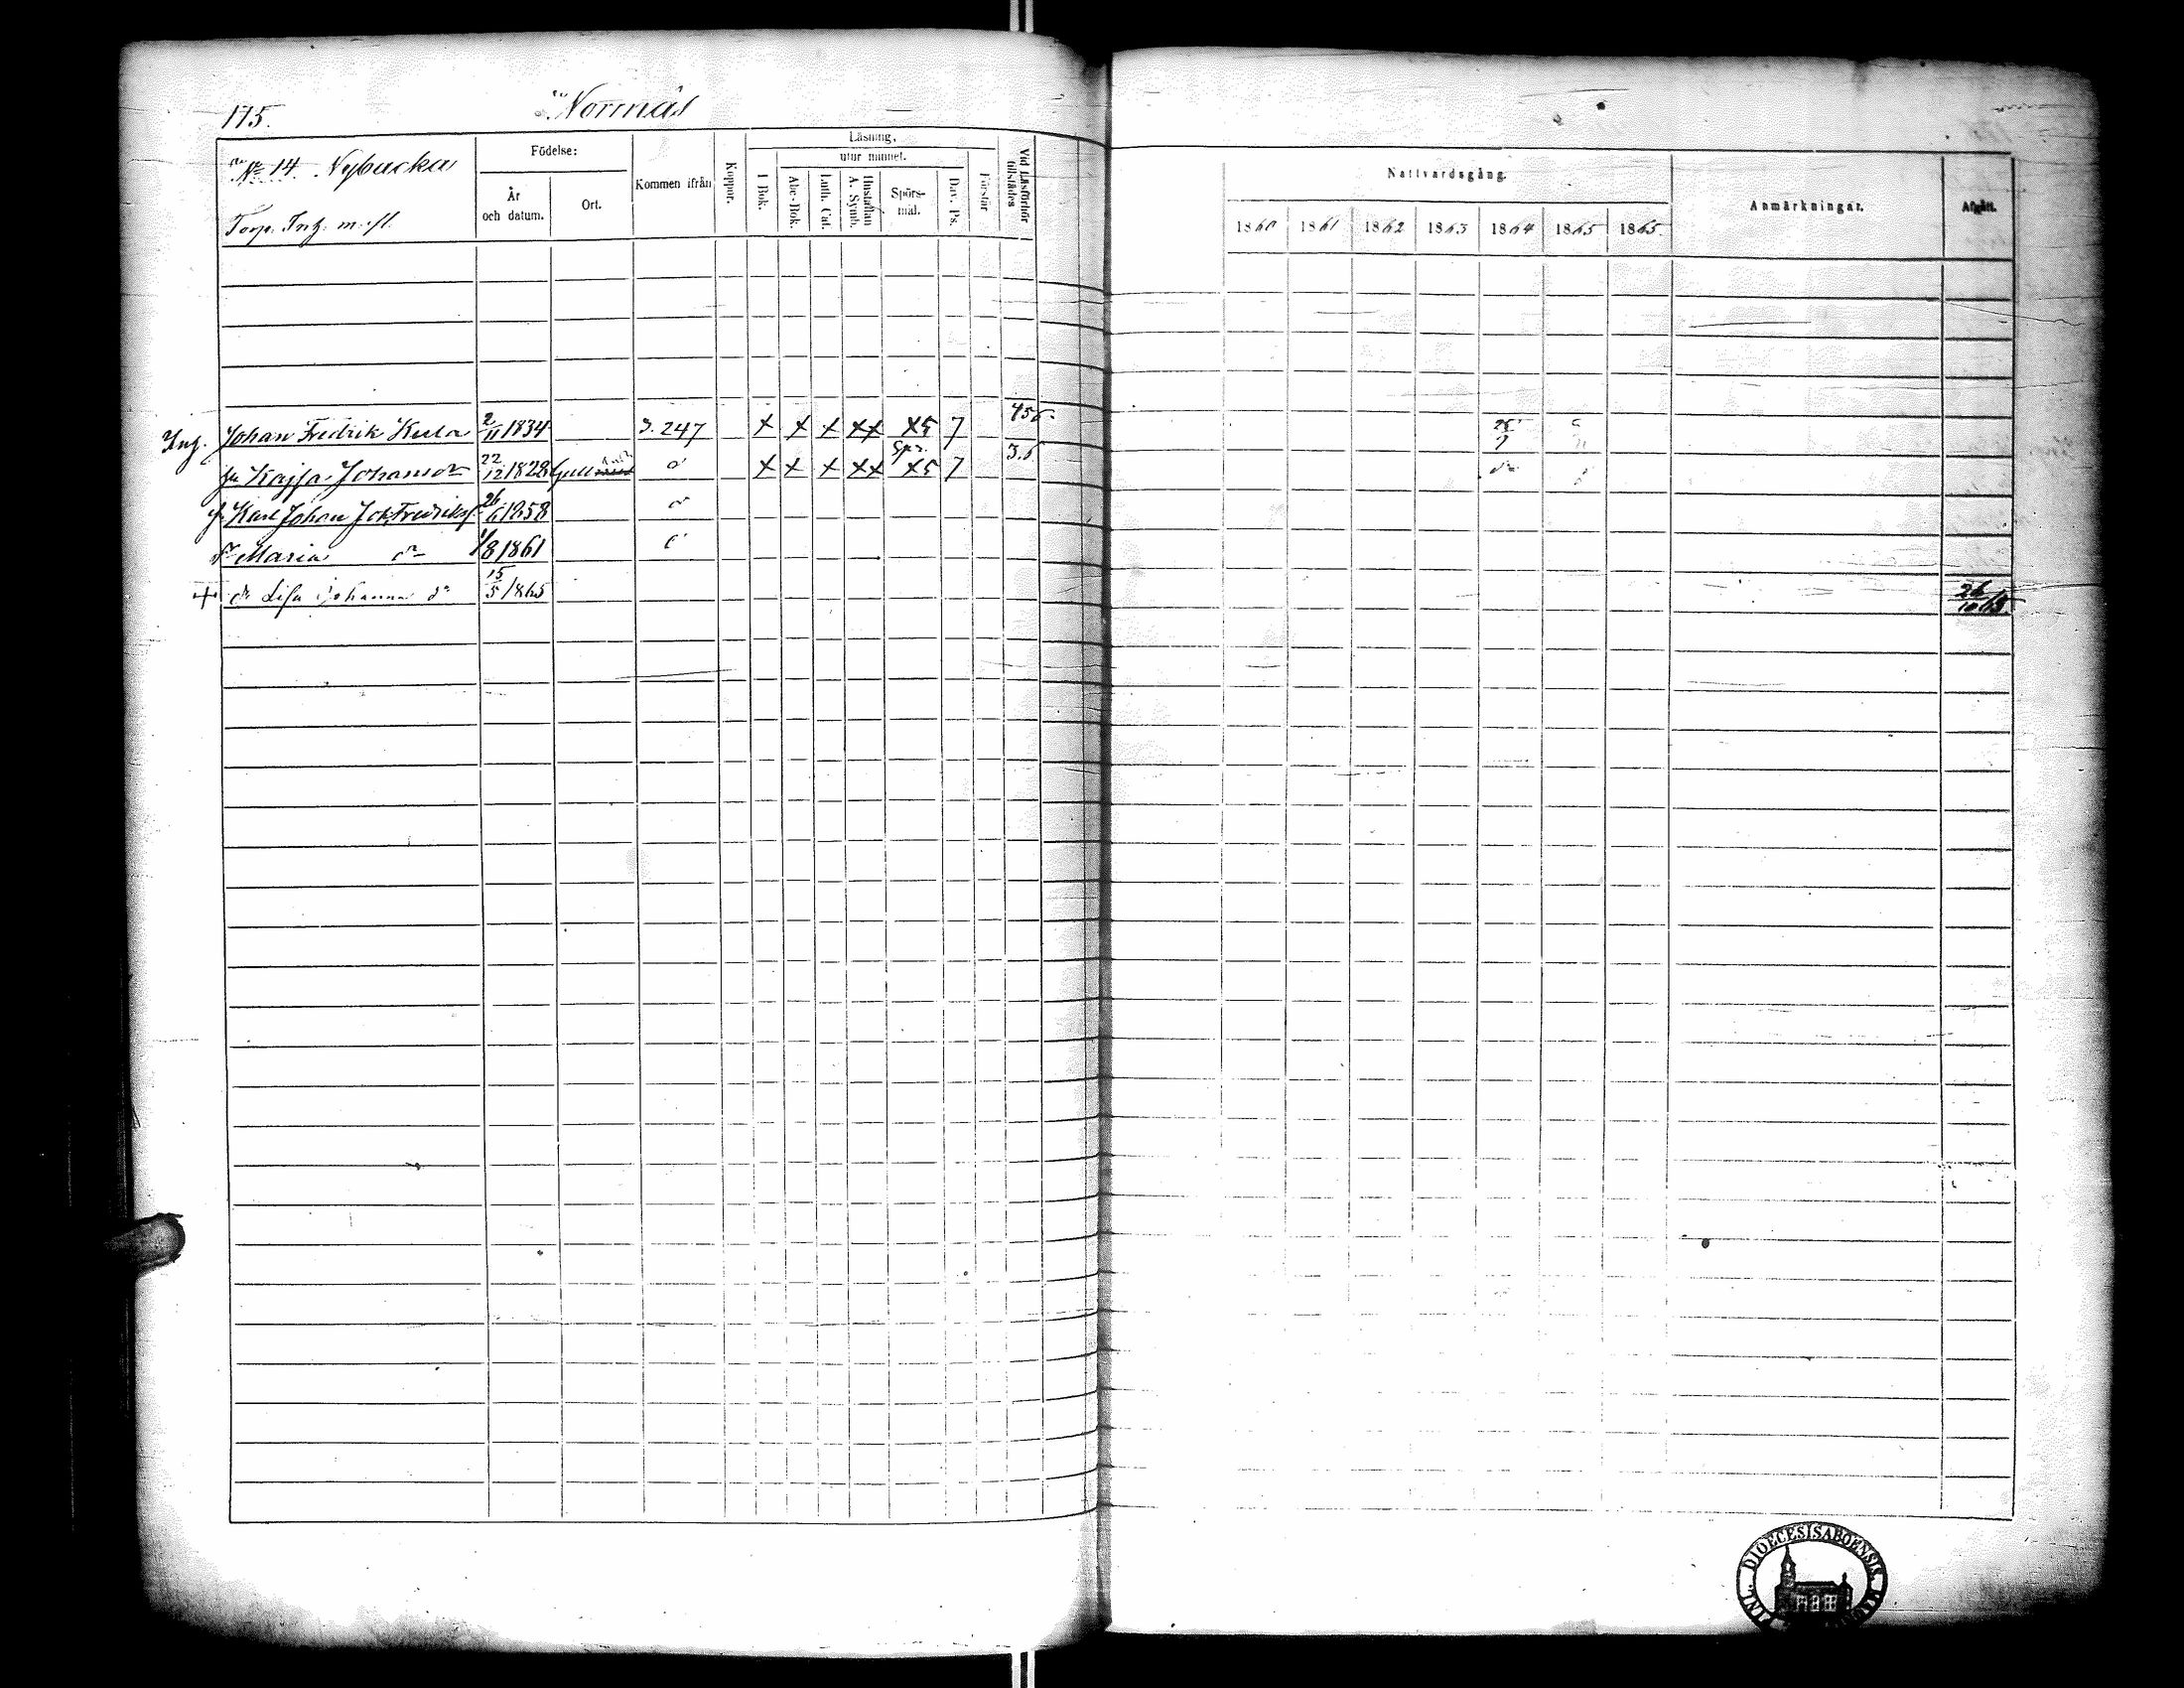 175. Normäs
No 14. Nybacka
Torp. Inh: m.fl.
Födelse:
År och datum.
Ort.
Kommen ifrån
Koppor.
Läsning,
utur minnet.
I Bok.
Abc-Bok.
Luth. Cat.
Hustaflan A. Symb.
Spörs-mål.
Dav. Ps.
Förstår
Vid Läsförhör tillstädes
Nattvardsgång.
1860 1861 1862 1863 1864 1865 1865
Anmärkningar.
Afgått.
Inh. Johan Fredrik 2/11 1834 S. 247 X X X XX X5 7
Kajsa Johansdr 22/12 1828 X X X XX X5 7 3.5
Karl Johan Joh. Fredriks 26/6 1858
Maria dr 1/8 1861
+ dr Lisa Johanna dr 15/5 1865
DIOECESIS ABOENSIS